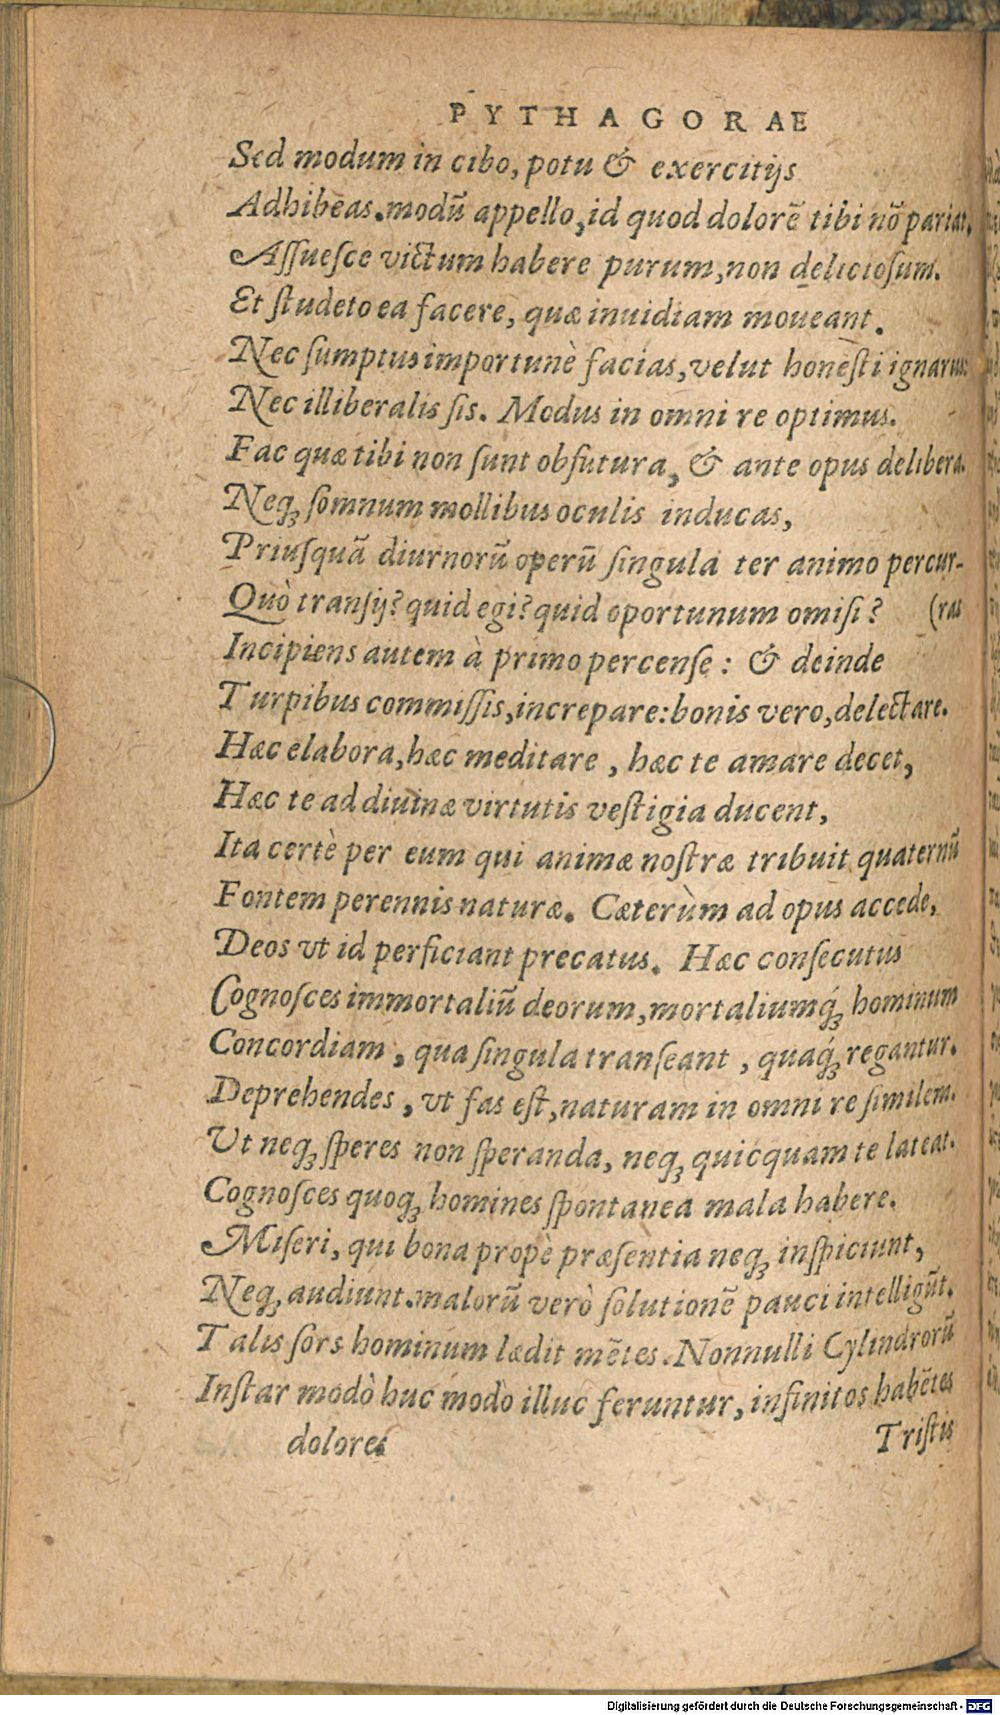 PYTHAGORAE
Sed modum in cibo, potu & exercitijs
Adhibeas. modū appello, id quod dolorē tibi nō pariat.
Aſſueſce victum habere purum, non delicioſum.
Et ſtudeto ea facere, quæ inuidiam moueant.
Nec ſumptus importunè facias, velut honeſti ignarus:
Nec illiberalis ſis. Modus in omni re optimus.
Fac quæ tibi non ſunt obfutura, & ante opus delibera.
Neqꝫ ſomnum mollibus oculis inducas,
Priuſquā diurnorū operū ſingula ter animo percur-
Quò tranſij? quid egi? quid oportunum omiſi? (ras
Incipiens autem à primo percenſe: & deinde
Turpibus commiſſis, increpare: bonis vero, delectare.
Hæc elabora, hæc meditare, hæc te amare decet,
Hæc te ad diuinæ virtutis veſtigia ducent,
Ita certè per eum qui animæ noſtræ tribuit quaternū
Fontem perennis naturæ. Cæterùm ad opus accede,
Deos vt id perficiant precatus. Hæc conſecutus
Cognoſces immortaliū deorum, mortaliumq́ꝫ hominum
Concordiam, qua ſingula tranſeant, quaq́ꝫ regantur.
Deprehendes, vt fas eſt, naturam in omni re ſimilem.
Vt neqꝫ ſperes non ſperanda, neqꝫ quicquam te lateat.
Cognoſces quoqꝫ homines ſpontanea mala habere.
Miſeri, qui bona propè præſentia neqꝫ inſpiciunt,
Neqꝫ audiunt. malorū verò ſolutionē pauci intelligūt.
Talis ſors hominum lædit mētes. Nonnulli Cylindrorū
Inſtar modò huc modò illuc feruntur, infinitos habētes
dolores Triſtis
Digitalisierung gefördert durch die Deutsche Forschungsgemeinschaft - DFG